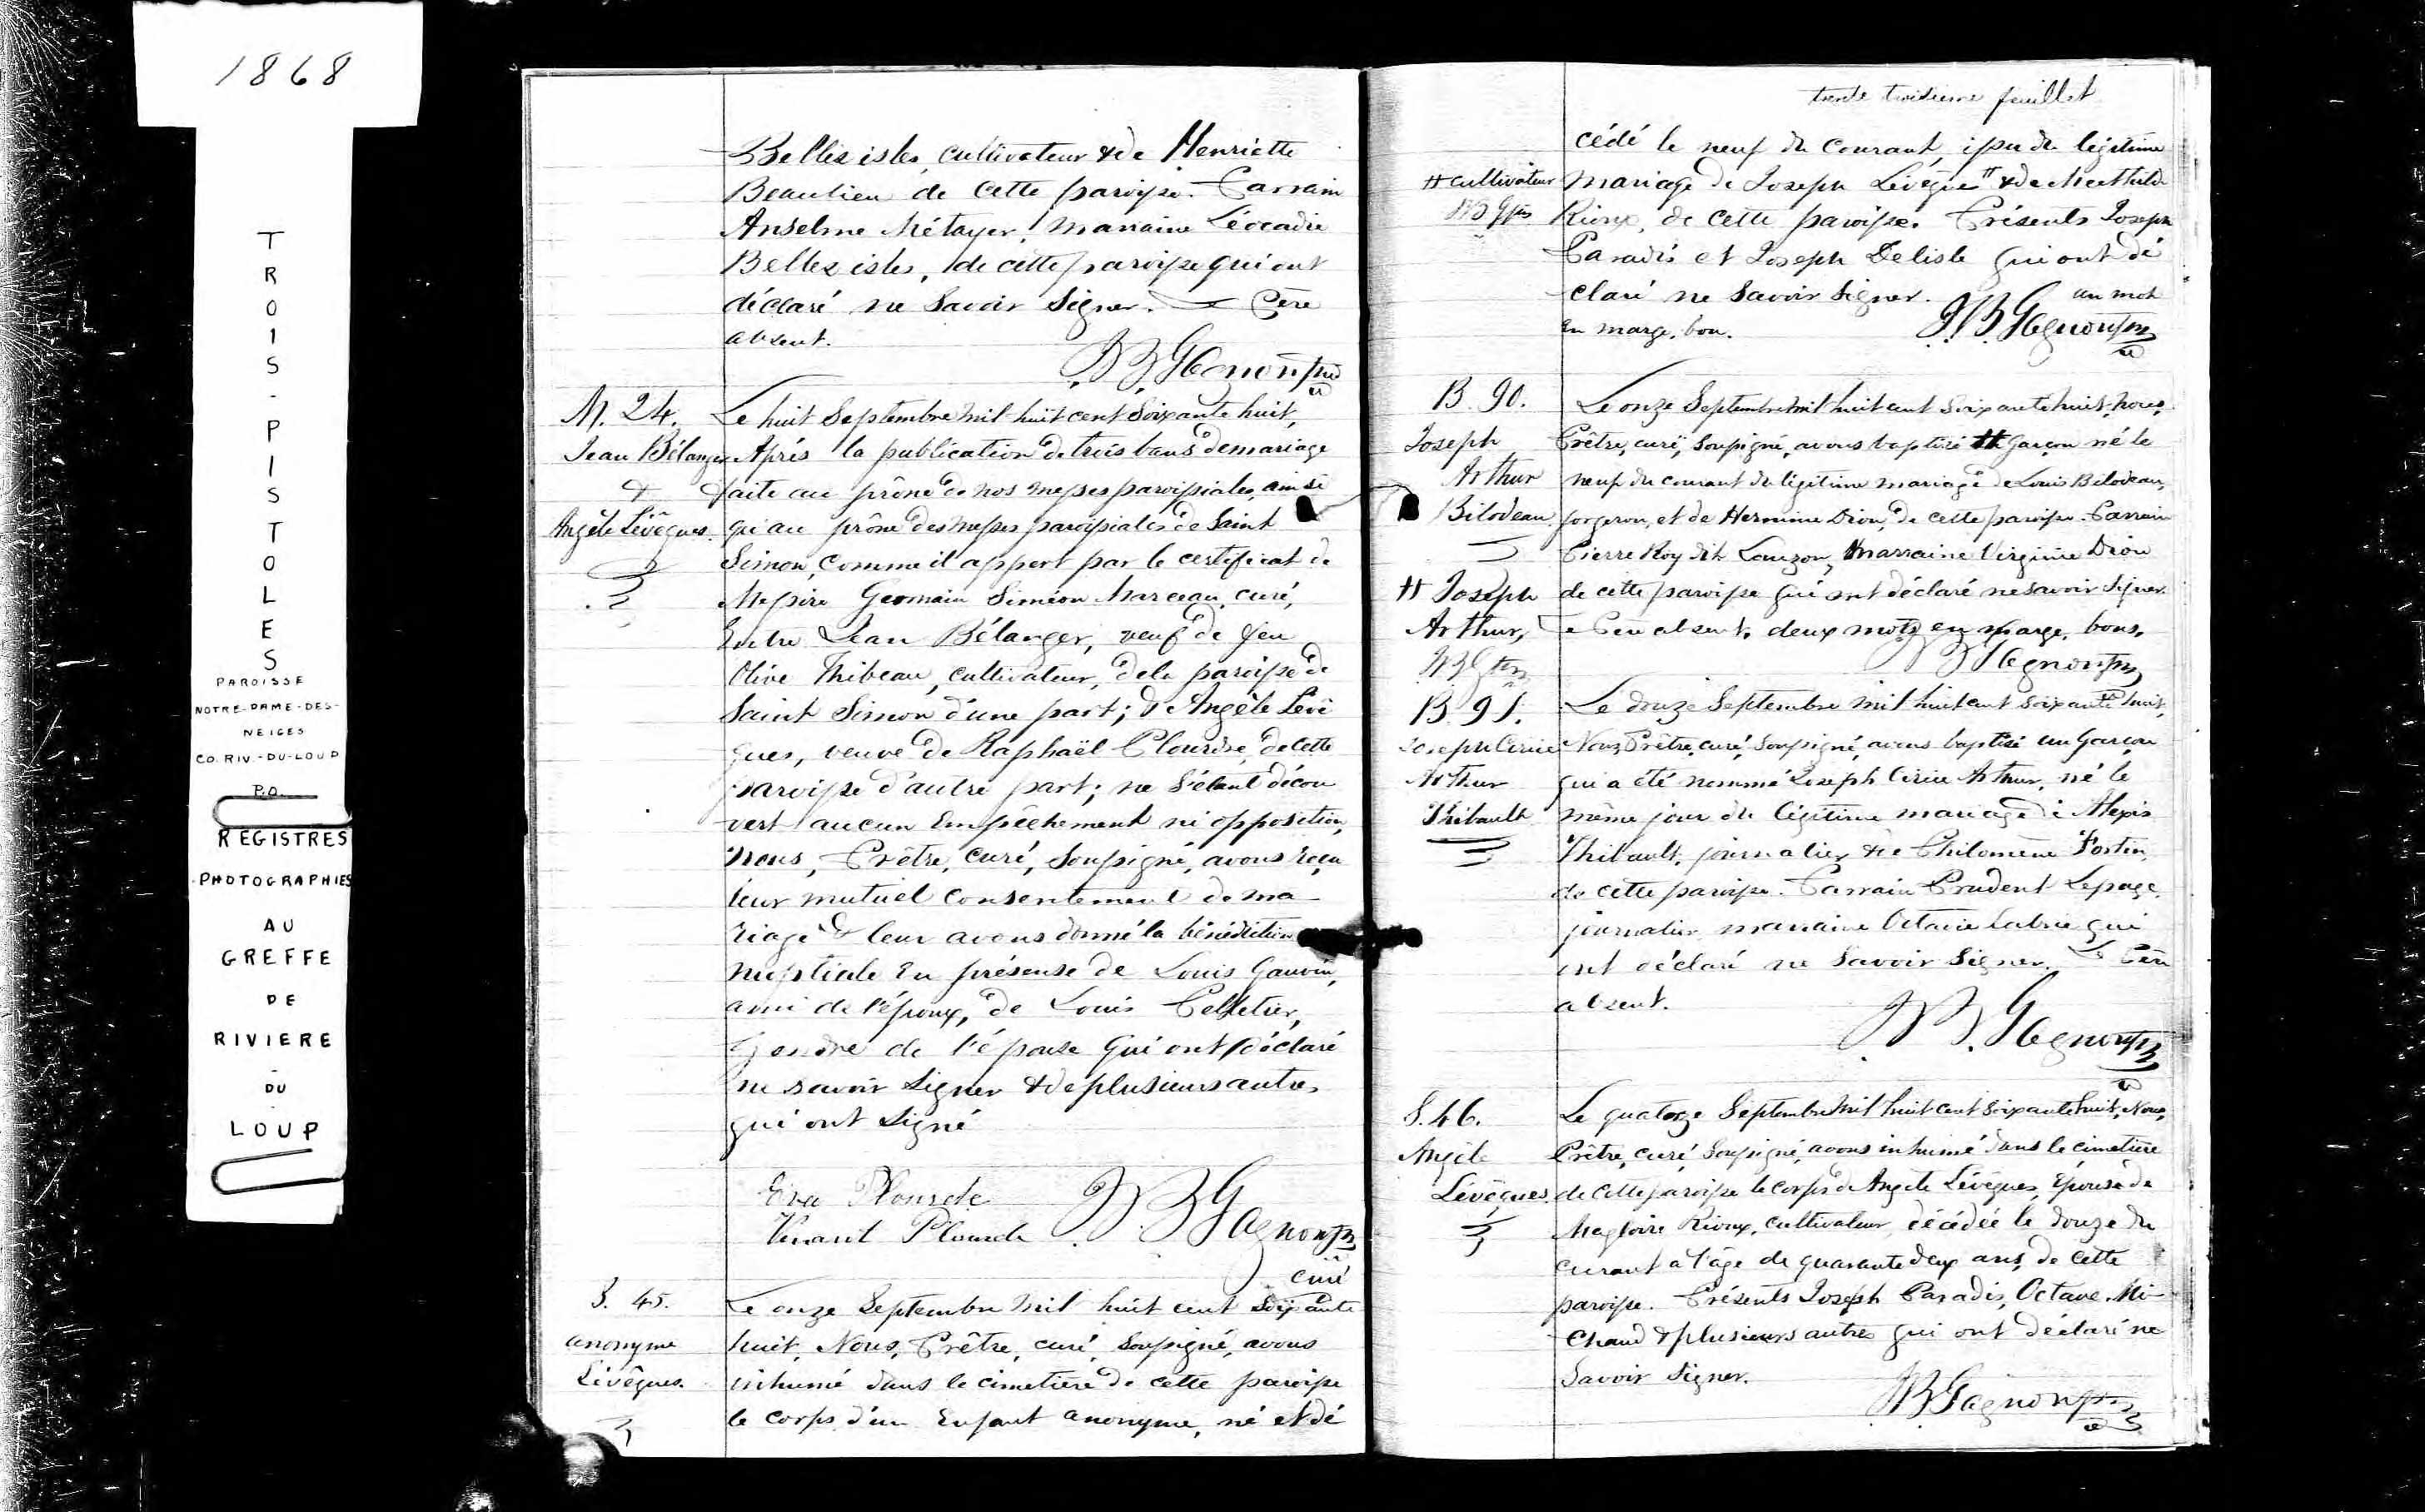 1868
TROIS-PISTOLES
PAROISSE
NOTRE-DAME-DES-
NEIGES
CO. RIV.-DU-LOUP
P.Q.
REGISTRES
PHOTOGRAPHIES
AU
GREFFE
DE
RIVIERE
DU
LOUP
Bellesisles, cultivateur & de Henriette
Beaulieu de cette paroisse. Parrain
Anselme Métayer, marraine Léocadie
Bellesisles, de cette paroisse qui ont
déclaré ne savoir signer. Le Père
absent.
J.B. Gagnon ptre
M. 24.
Jean Bélanger
&
Angèle Lévêques.
Le huit Septembre mil huit cent soixante huit,
Après la publication de trois bans de mariage
faite au prône de nos messes paroissiales, ainsi
qu'au prône des messes paroissiales de Saint
Simon, comme il appert par le certificat de
Messire Germain Siméon Marceau, curé,
Entre Jean Bélanger, veuf de feu
Olive Thibeau, cultivateur, de la paroisse de
Saint Simon d'une part; & Angèle Levê
ques, veuve de Raphaël Plourde, de cette
paroisse d'autre part; ne s'étant décou
vert aucun Empêchement ni opposition,
Nous, Prêtre, curé, soussigné, avons reçu
leur mutuel consentement de ma-
riage & leur avons donné la bénédiction
nuptiale En présense de Louis Gauvin,
ami de l'époux, de Louis Pelletier,
Gendre de l'épouse qui ont déclaré
ne savoir signer & de plusieurs autres
qui ont signé
Eva Plourde
Venant Plourde
J.B. Gagnon ptre
curé
S. 45.
anonyme
Lévêques.
Le onze Septembre mil huit cent soixante
huit, Nous, Prêtre, curé, soussigné, avons
inhumé dans le cimetière de cette paroisse
le corps d'un Enfant anonyme, né et dé
trente troisième feuillet
cédé le neuf du courant, issu du légitime
# cultivateur
JBG ptre
mariage de Joseph Lévêques # & de Mathilde
Rioux, de cette paroisse. Présents Joseph
Paradis et Joseph Delisle qui ont dé
claré ne savoir signer. un mot
en marge, bon.
J.B. Gagnon ptre
B. 90.
Joseph
Arthur
Bilodeau
# Joseph
Arthur,
JBG ptre
Le onze Septembre mil huit cent soixante huit, nous,
Prêtre, curé, soussigné, avons baptisé # Garçon né le
neuf du courant du légitime mariage de Louis Bilodeau,
forgeron, et de Hermine Dion, de cette paroisse. Parrain
Pierre Roy dit Lauzon, Marraine Virginie Dion
de cette paroisse qui ont déclaré ne savoir signer.
Le Père absent. deux mots en marge, bons.
J.B. Gagnon ptre
B. 91.
Joseph Cirice
Arthur
Thibault
Le douze Septembre mil huit cent soixante huit,
Nous Prêtre, curé, soussigné, avons baptisé un Garçon
qui a été nommé Joseph Cirice Arthur, né le
même jour du légitime mariage de Alexis
Thibault, journalier & de Philomène Fortin,
de cette paroisse. Parrain Prudent Lepage,
journalier marraine Octavie Labrie qui
ont déclaré ne savoir signer. Le Père
absent.
J.B. Gagnon ptre
S. 46.
Angèle
Lévêques.
Le quatorze Septembre mil huit cent soixante huit, Nous,
Prêtre, curé, soussigné, avons inhumé dans le cimetière
de cette paroisse le corps de Angèle Lévêques, Épouse de
Magloire Rioux, cultivateur, décédée le douze du
courant à l'âge de quarante deux ans, de cette
paroisse. Présents Joseph Paradis, Octave Mi-
chaud & plusieurs autres qui ont déclaré ne
savoir signer.
J.B. Gagnon ptre